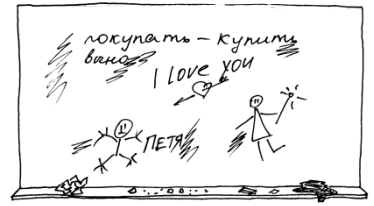 покупать – купить
вино
I love you
ПЕТЯ